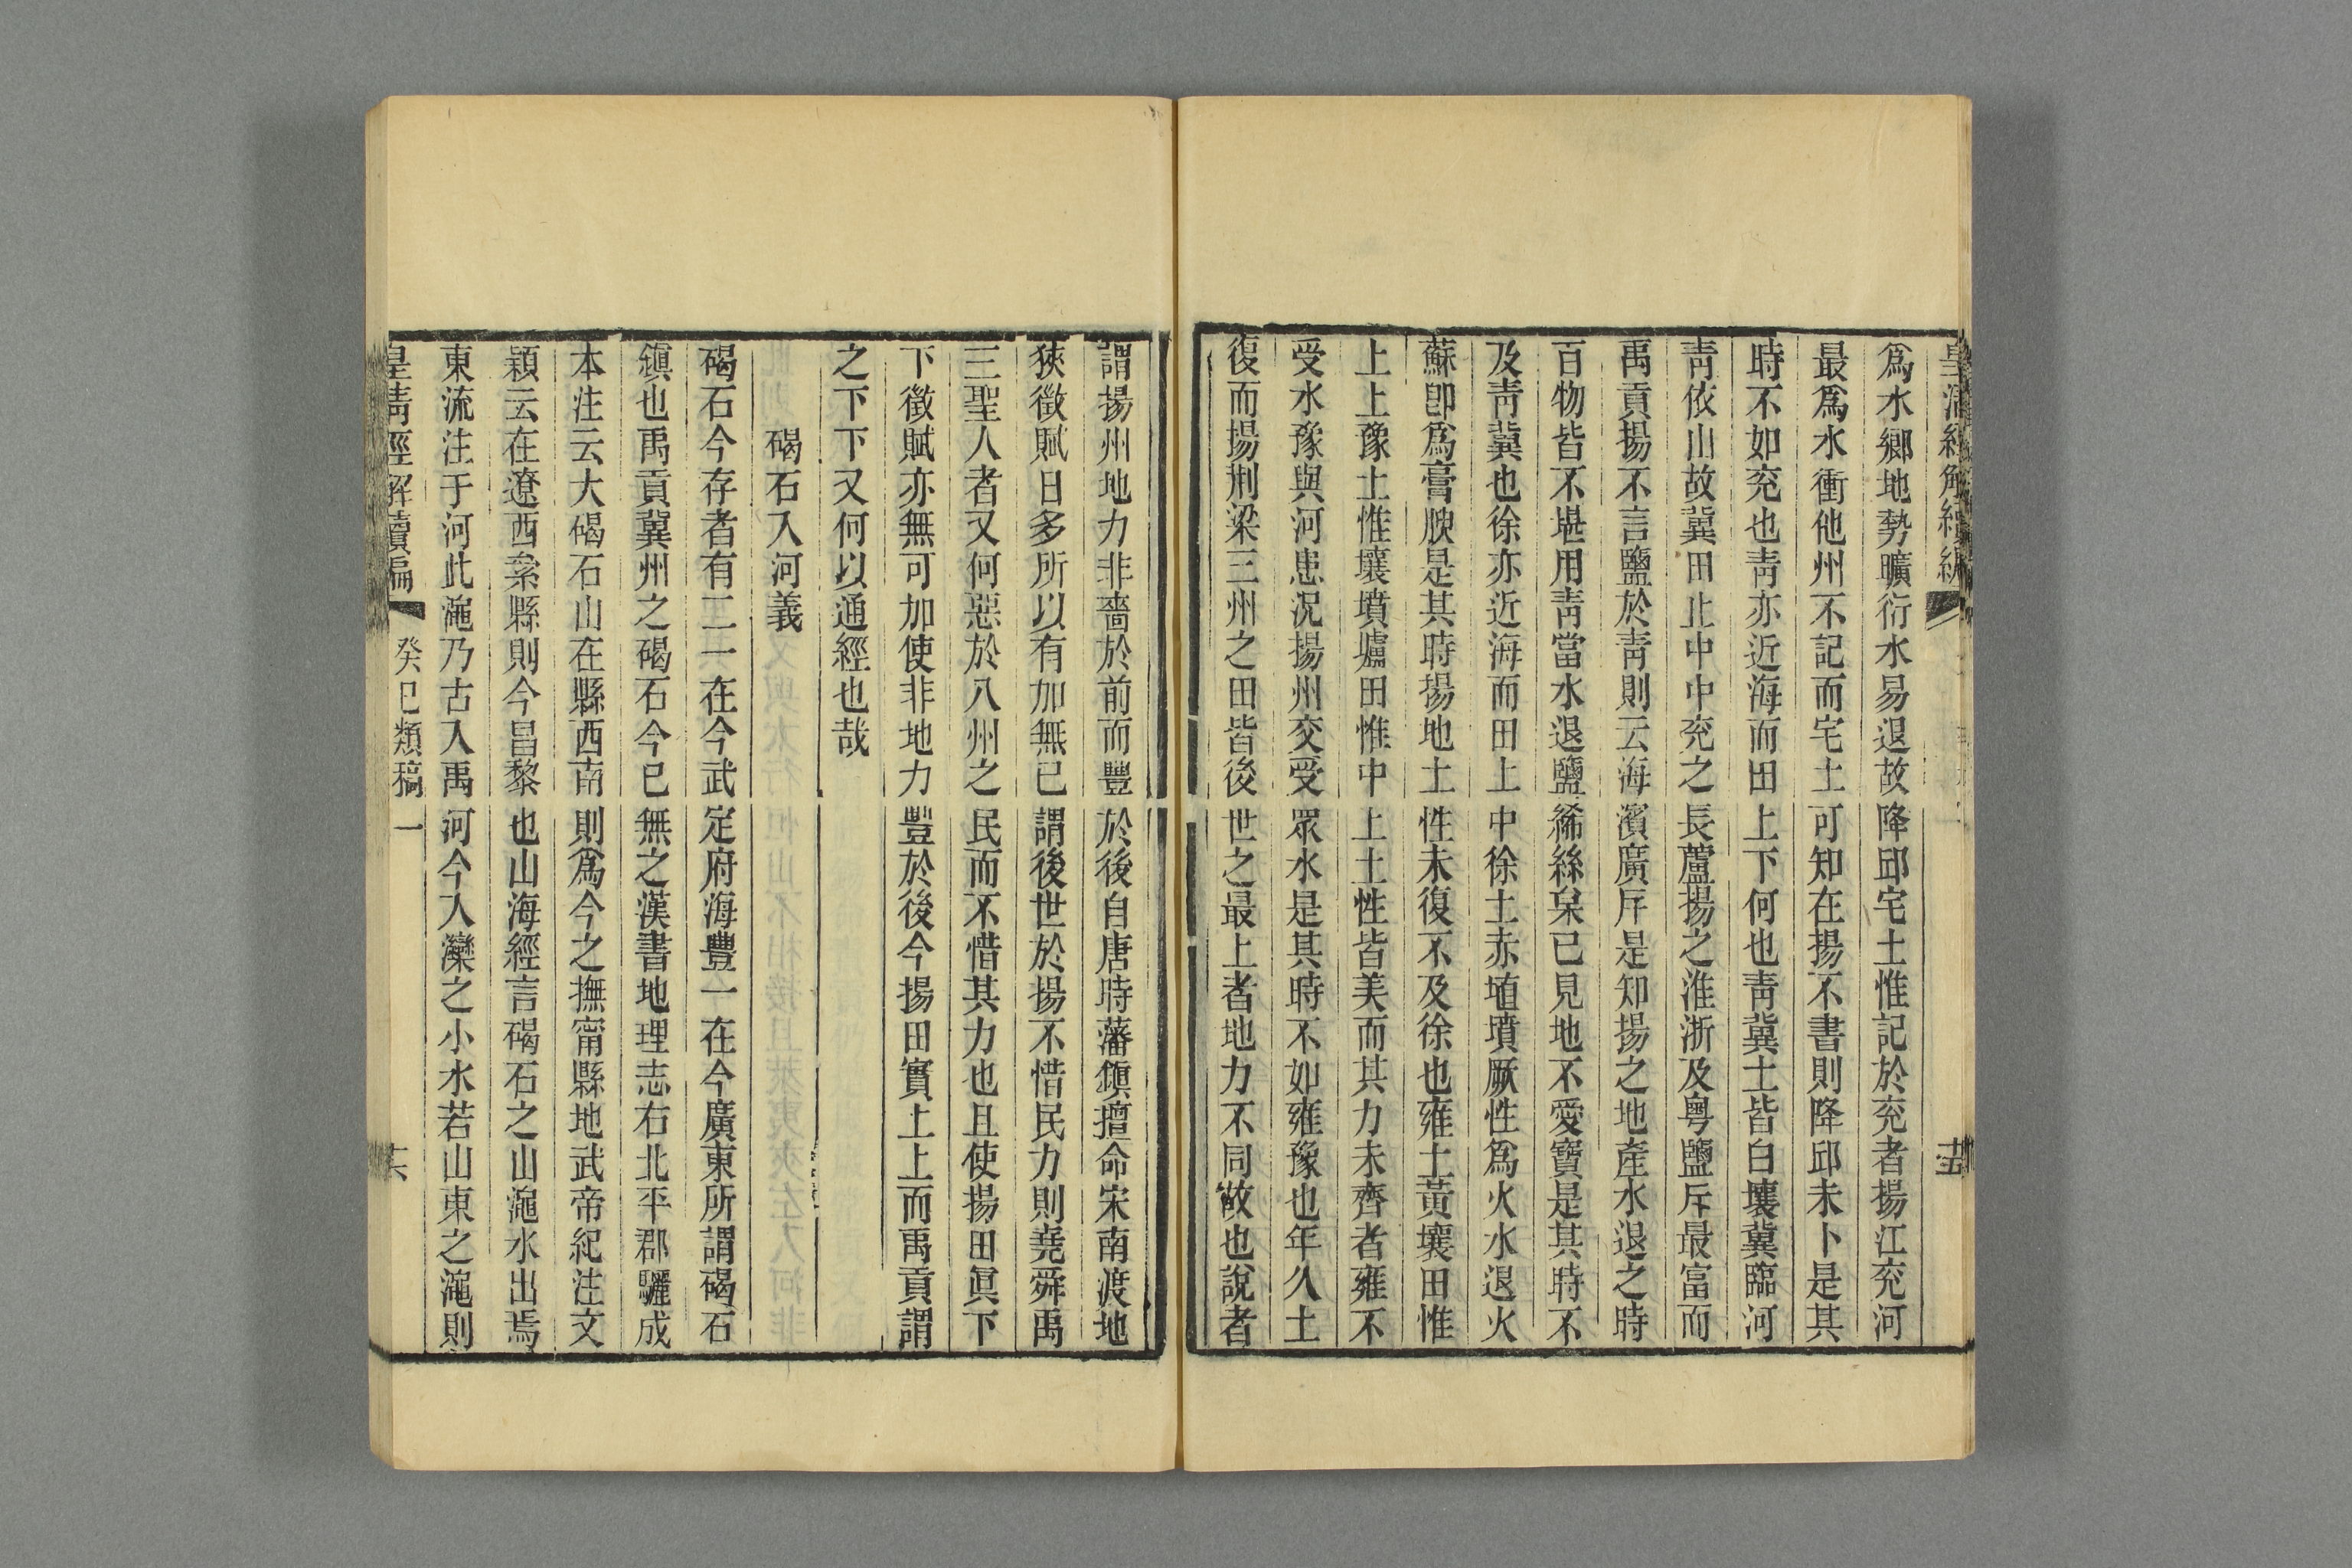 皇清經解續編
十五
爲水鄉地勢曠衍水易退故降邱宅土惟記於兖者揚江兖河
最爲水衝他州不記而宅土可知在揚不書則降邱未卜是其
時不如兖也靑亦近海而田上下何也靑冀土皆白壤冀臨河
靑依山故冀田止中中兖之長蘆揚之淮浙及粤鹽斥最富而
禹貢揚不言鹽於靑則云海濱廣斥是知揚之地產水退之時
百物皆不堪用靑當水退鹽絺絲枲已見地不愛寶是其時不
及靑冀也徐亦近海而田上中徐土赤埴墳厥性爲火水退火
蘇卽爲膏腴是其時揚地土性未復不及徐也雍土黃壤田惟
上上豫土惟壤墳壚田惟中上土性皆美而其力未齊者雍不
受水豫與河患況揚州交受眾水是其時不如雍豫也年久土
復而揚荆梁三州之田皆後世之最上者地力不同故也說者
謂揚州地力非嗇於前而豐於後自唐時藩鎭擅命宋南渡地
狹徵賦日多所以有加無已謂後世於揚不惜民力則堯舜禹
三聖人者又何惡於八州之民而不惜其力也且使揚田眞下
下徵賦亦無可加使非地力豐於後今揚田實上上而禹貢謂
之下下又何以通經也哉
碣石入河義
碣石今存者有二一在今武定府海豐一在今廣東所謂碣石
鎭也禹貢冀州之碣石今已無之漢書地理志右北平郡驪成
本注云大碣石山在縣西南則爲今之撫甯縣地武帝紀注文
穎云在遼西絫縣則今昌黎也山海經言碣石之山澠水出焉
東流注于河此澠乃古入禹河今入灤之小水若山東之澠則
皇清經解續編
癸巳類稿一
十六